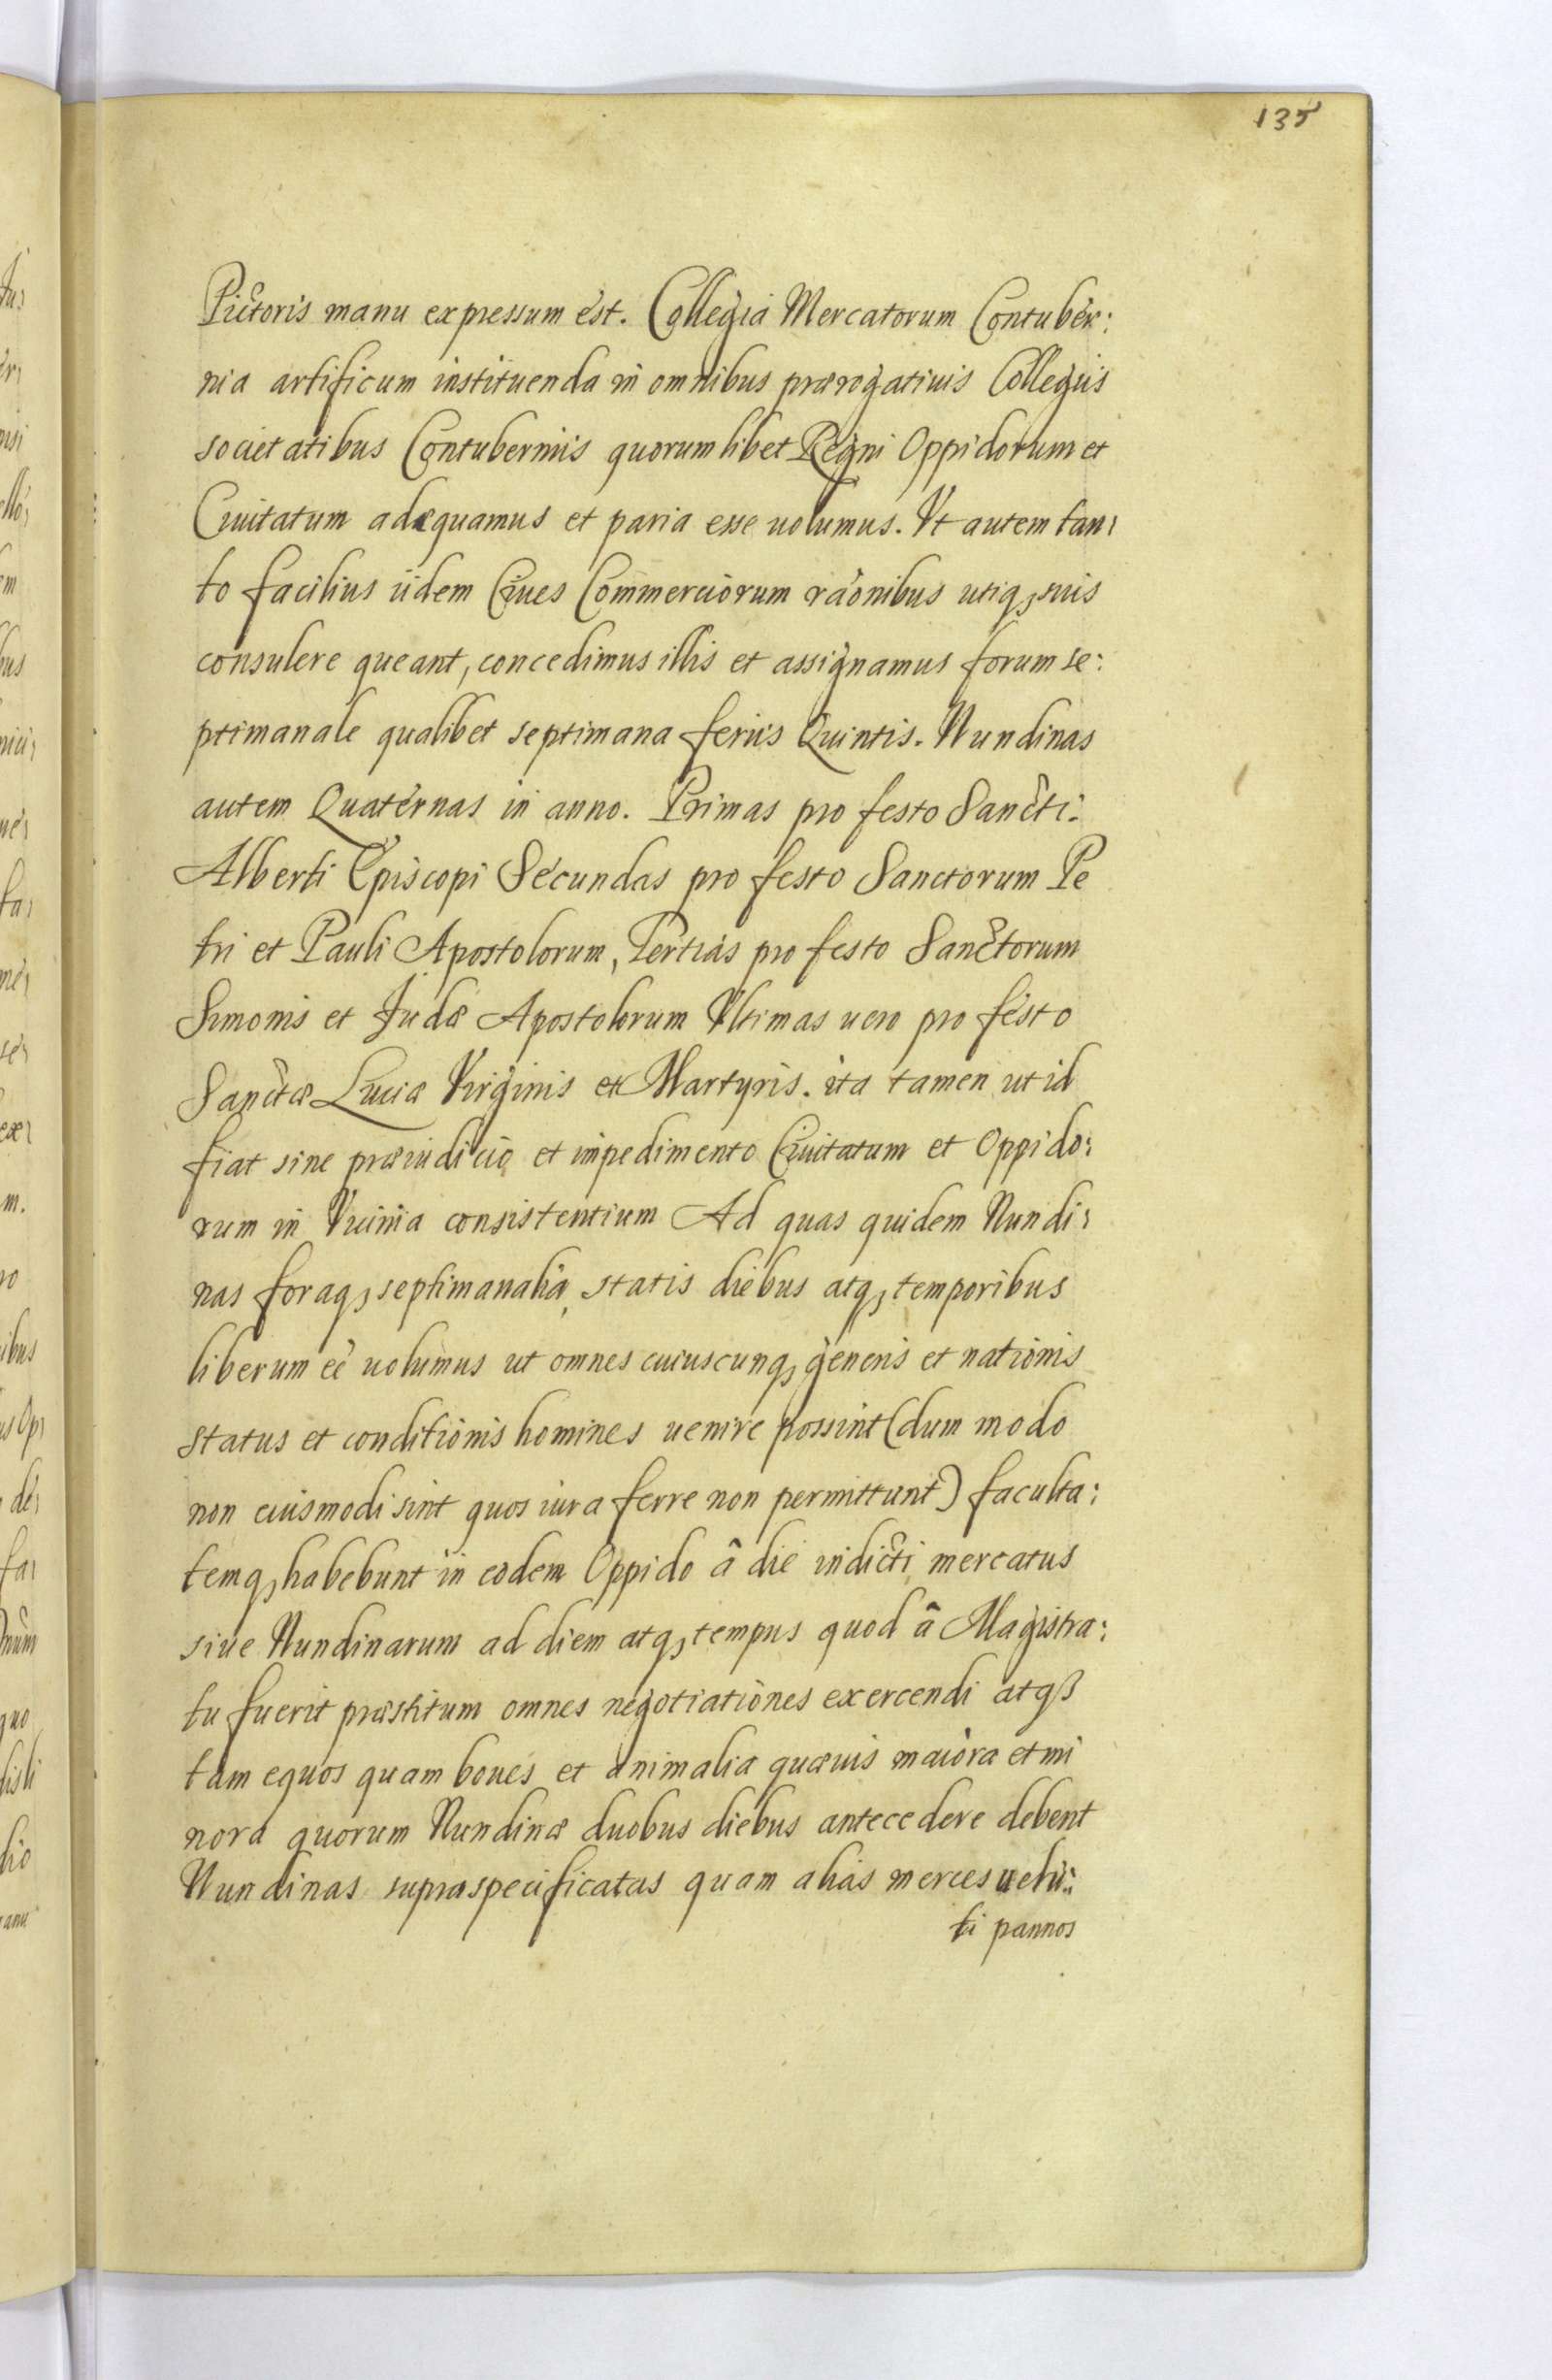 135
Pictoris manu expressum est. Collegia Mercatorum Contuber:
nia artificum instituenda in omnibus prærogatiuis Collegiis
societatibus Contuberniis quorumlibet Regni Oppidorum et
Ciuitatum adæquamus et paria esse uolumus. Vt autem tan:
to facilius iidem Ciues Commerciorum rãonibus utiq₃ suis
consulere queant, concedimus illis et assignamus forum se:
ptimanale qualibet septimana feriis Quintis. Nundinas
autem Quaternas in anno. Primas pro festo Sancti:
Alberti Episcopi Secundas pro festo Sanctorum Pe
tri et Pauli Apostolorum, Tertias pro festo Sanctorum
Simonis et Judæ Apostolorum Vltimas uero pro festo
Sanctæ Luciæ Virginis et Martyris. ita tamen ut id
fiat sine præiudicio et impedimento Ciuitatum et Oppido:
rum in Vicinia consistentium Ad quas quidem Nundi:
nas foraq₃ septimanalia, statis diebus atq₃ temporibus
liberum eẽ uolumus ut omnes cuiuscunq₃ generis et nationis
status et conditionis homines uenire possint (dum modo
non eiusmodi sint quos iura ferre non permittunt) faculta:
temq₃ habebunt in eodem Oppido â die indicti mercatus
siue Nundinarum ad diem atq₃ tempus quod â Magistra:
tu fuerit præstitum omnes negotiationes exercendi atqß
tam equos quam boues et animalia quæuis maiora et mi
nora quorum Nundinæ duobus diebus antecedere debent
Nundinas supraspecificatas quam alias merces uelu:
ti pannos